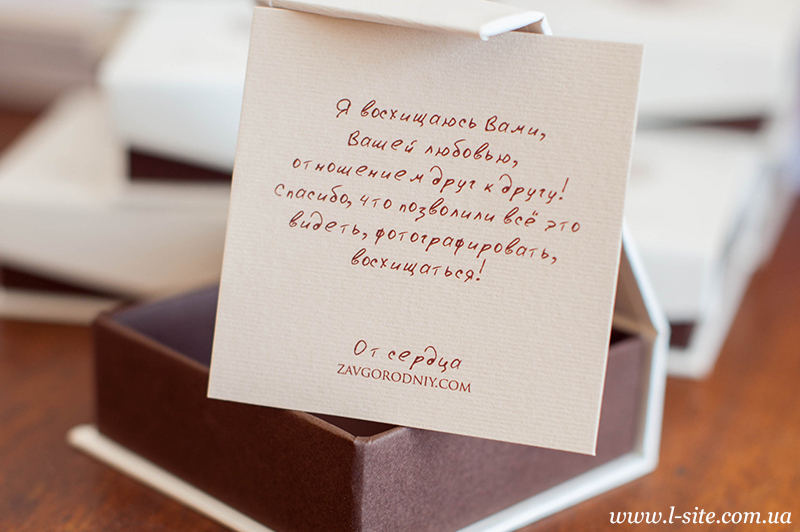 Я восхищаюсь Вами,
Вашей любовью,
отношением друг к другу!
Спасибо, что позволили всё это
видеть, фотографировать,
восхищаться!
От сердца
ZAVGORODNIY.COM
www.l-site.com.ua